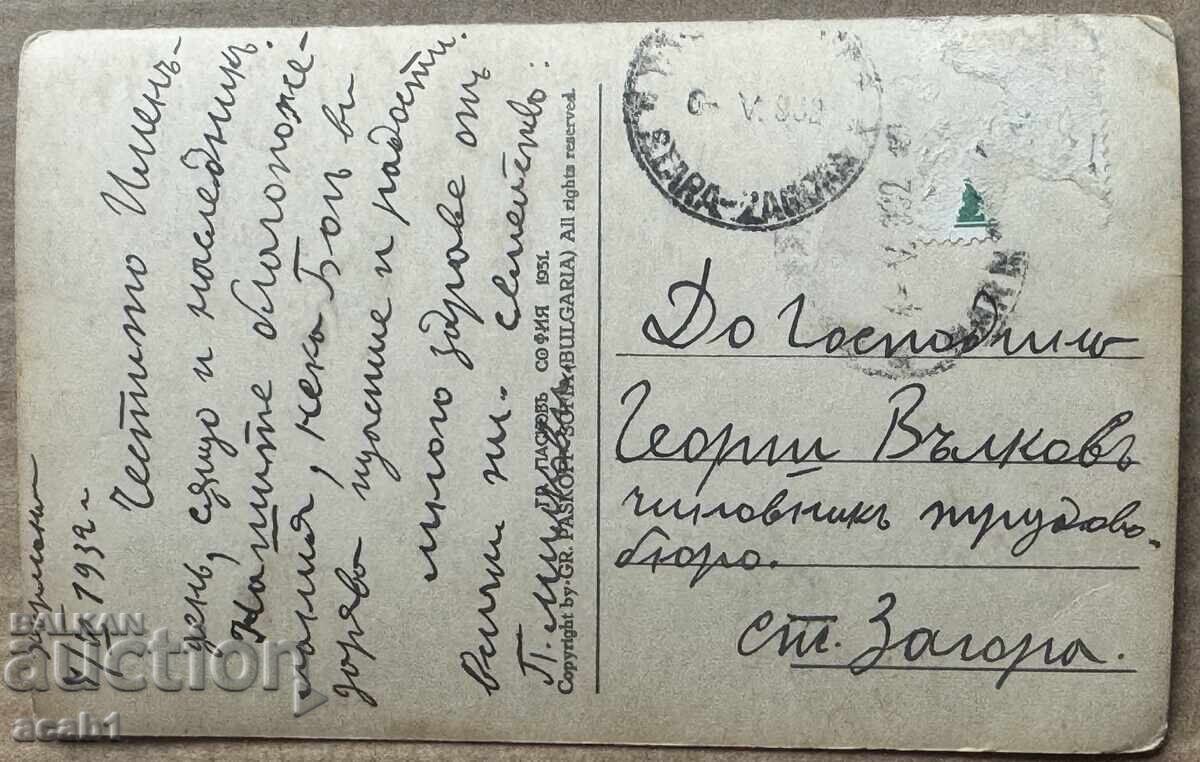 Хармани
4/V 1932 г.
Честито Именъ-
день, също и наследникъ.
Нашите благопоже-
лания, нека Богъ ви
дорява щастие и радости.
много здраве отъ
всички ни. семейство:
П.
ГР. ПАСКОВЪ СОФИЯ 1931.
Copyright by GR. PASKOFF SOFIA (BULGARIA) All rights reserved.
V. 932
STARA-ZAGORA
V 932
До Господинъ
Георги Вълковъ
чиновникъ трудово
бюро.
ст. Загора.
BALKAN
auction
acab1